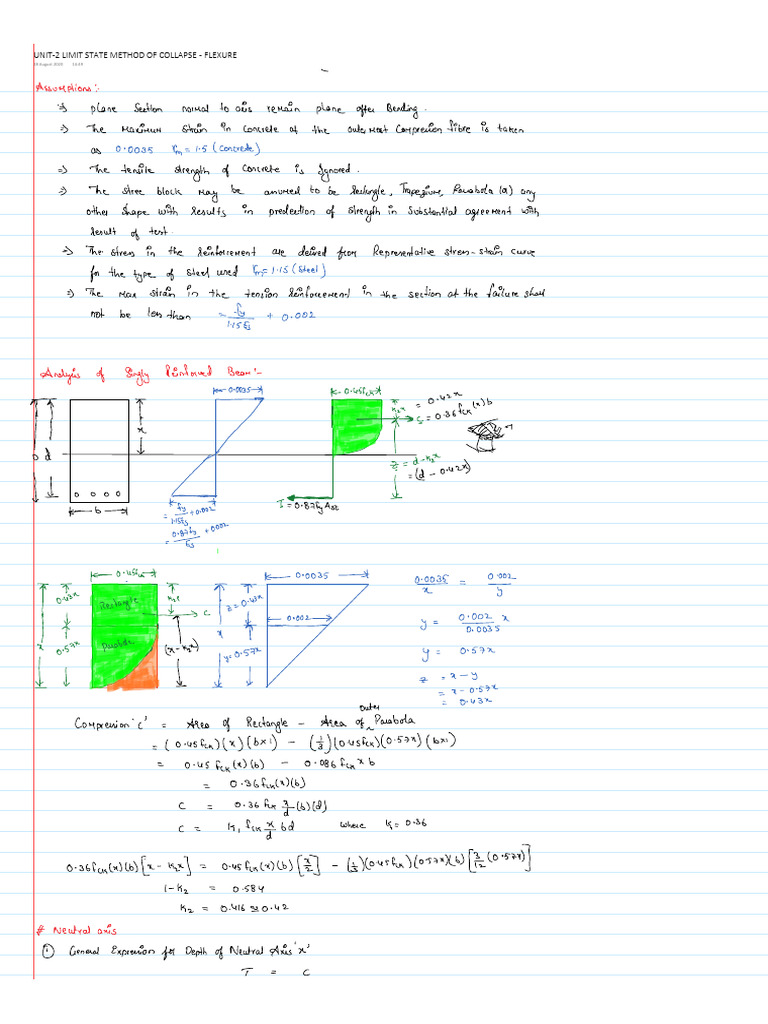 UNIT-2 LIMIT STATE METHOD OF COLLAPSE - FLEXURE
Assumptions :-
⇒ plane Section normal to axis remain plane after Bending.
⇒ The Maximum strain in Concrete at the outermost Compression fibre is taken
as 0.0035 γm = 1.5 (Concrete)
⇒ The tensile strength of Concrete is Ignored.
⇒ The stress block may be assumed to be Rectangle, Trapezium, Parabola (or) any
other Shape with Results in prediction of Strength in Substantial agreement with
result of test.
⇒ The Stress in the Reinforcement are derived from Representative stress-strain curve
for the type of Steel used γm = 1.15 (Steel)
⇒ The Max strain in the tension Reinforcement in the section at the failure shall
not be less than = fy/1.15Es + 0.002
Analysis of Singly Reinforced Beam :-
0.0035
0.45fck
k2x = 0.42x
C = 0.36 fck (x) b
D d x
z = d - k2x
= (d - 0.42x)
b
T = 0.87fy Ast
= fy/1.15Es + 0.002
= 0.87fy/Es + 0.002
0.45fck
0.0035
0.0035/x = 0.002/y
0.43x Rectangle k2x C
z = 0.43x
0.002
y = 0.002/0.0035 x
x 0.57x Parabola (x - k2x)
x y = 0.57x
y = 0.57x
z = x - y
= x - 0.57x
= 0.43x
Compression 'C' = Area of Rectangle - Area of outer Parabola
= (0.45fck)(x)(b×1) - (1/3)(0.45fck)(0.57x)(b×1)
= 0.45 fck (x)(b) - 0.086 fck x b
= 0.36 fck (x)(b)
C = 0.36 fck x/d (b)(d)
C = K1 fck x/d bd where K = 0.36
0.36fck (x)(b) [x - k2x] = 0.45 fck (x)(b) [x/2] - (1/3)(0.45 fck)(0.57x)(b) [3/12 (0.57x)]
1 - K2 = 0.584
K2 = 0.416 ≈ 0.42
# Neutral axis
① General Expression for Depth of Neutral Axis 'x'
T = C